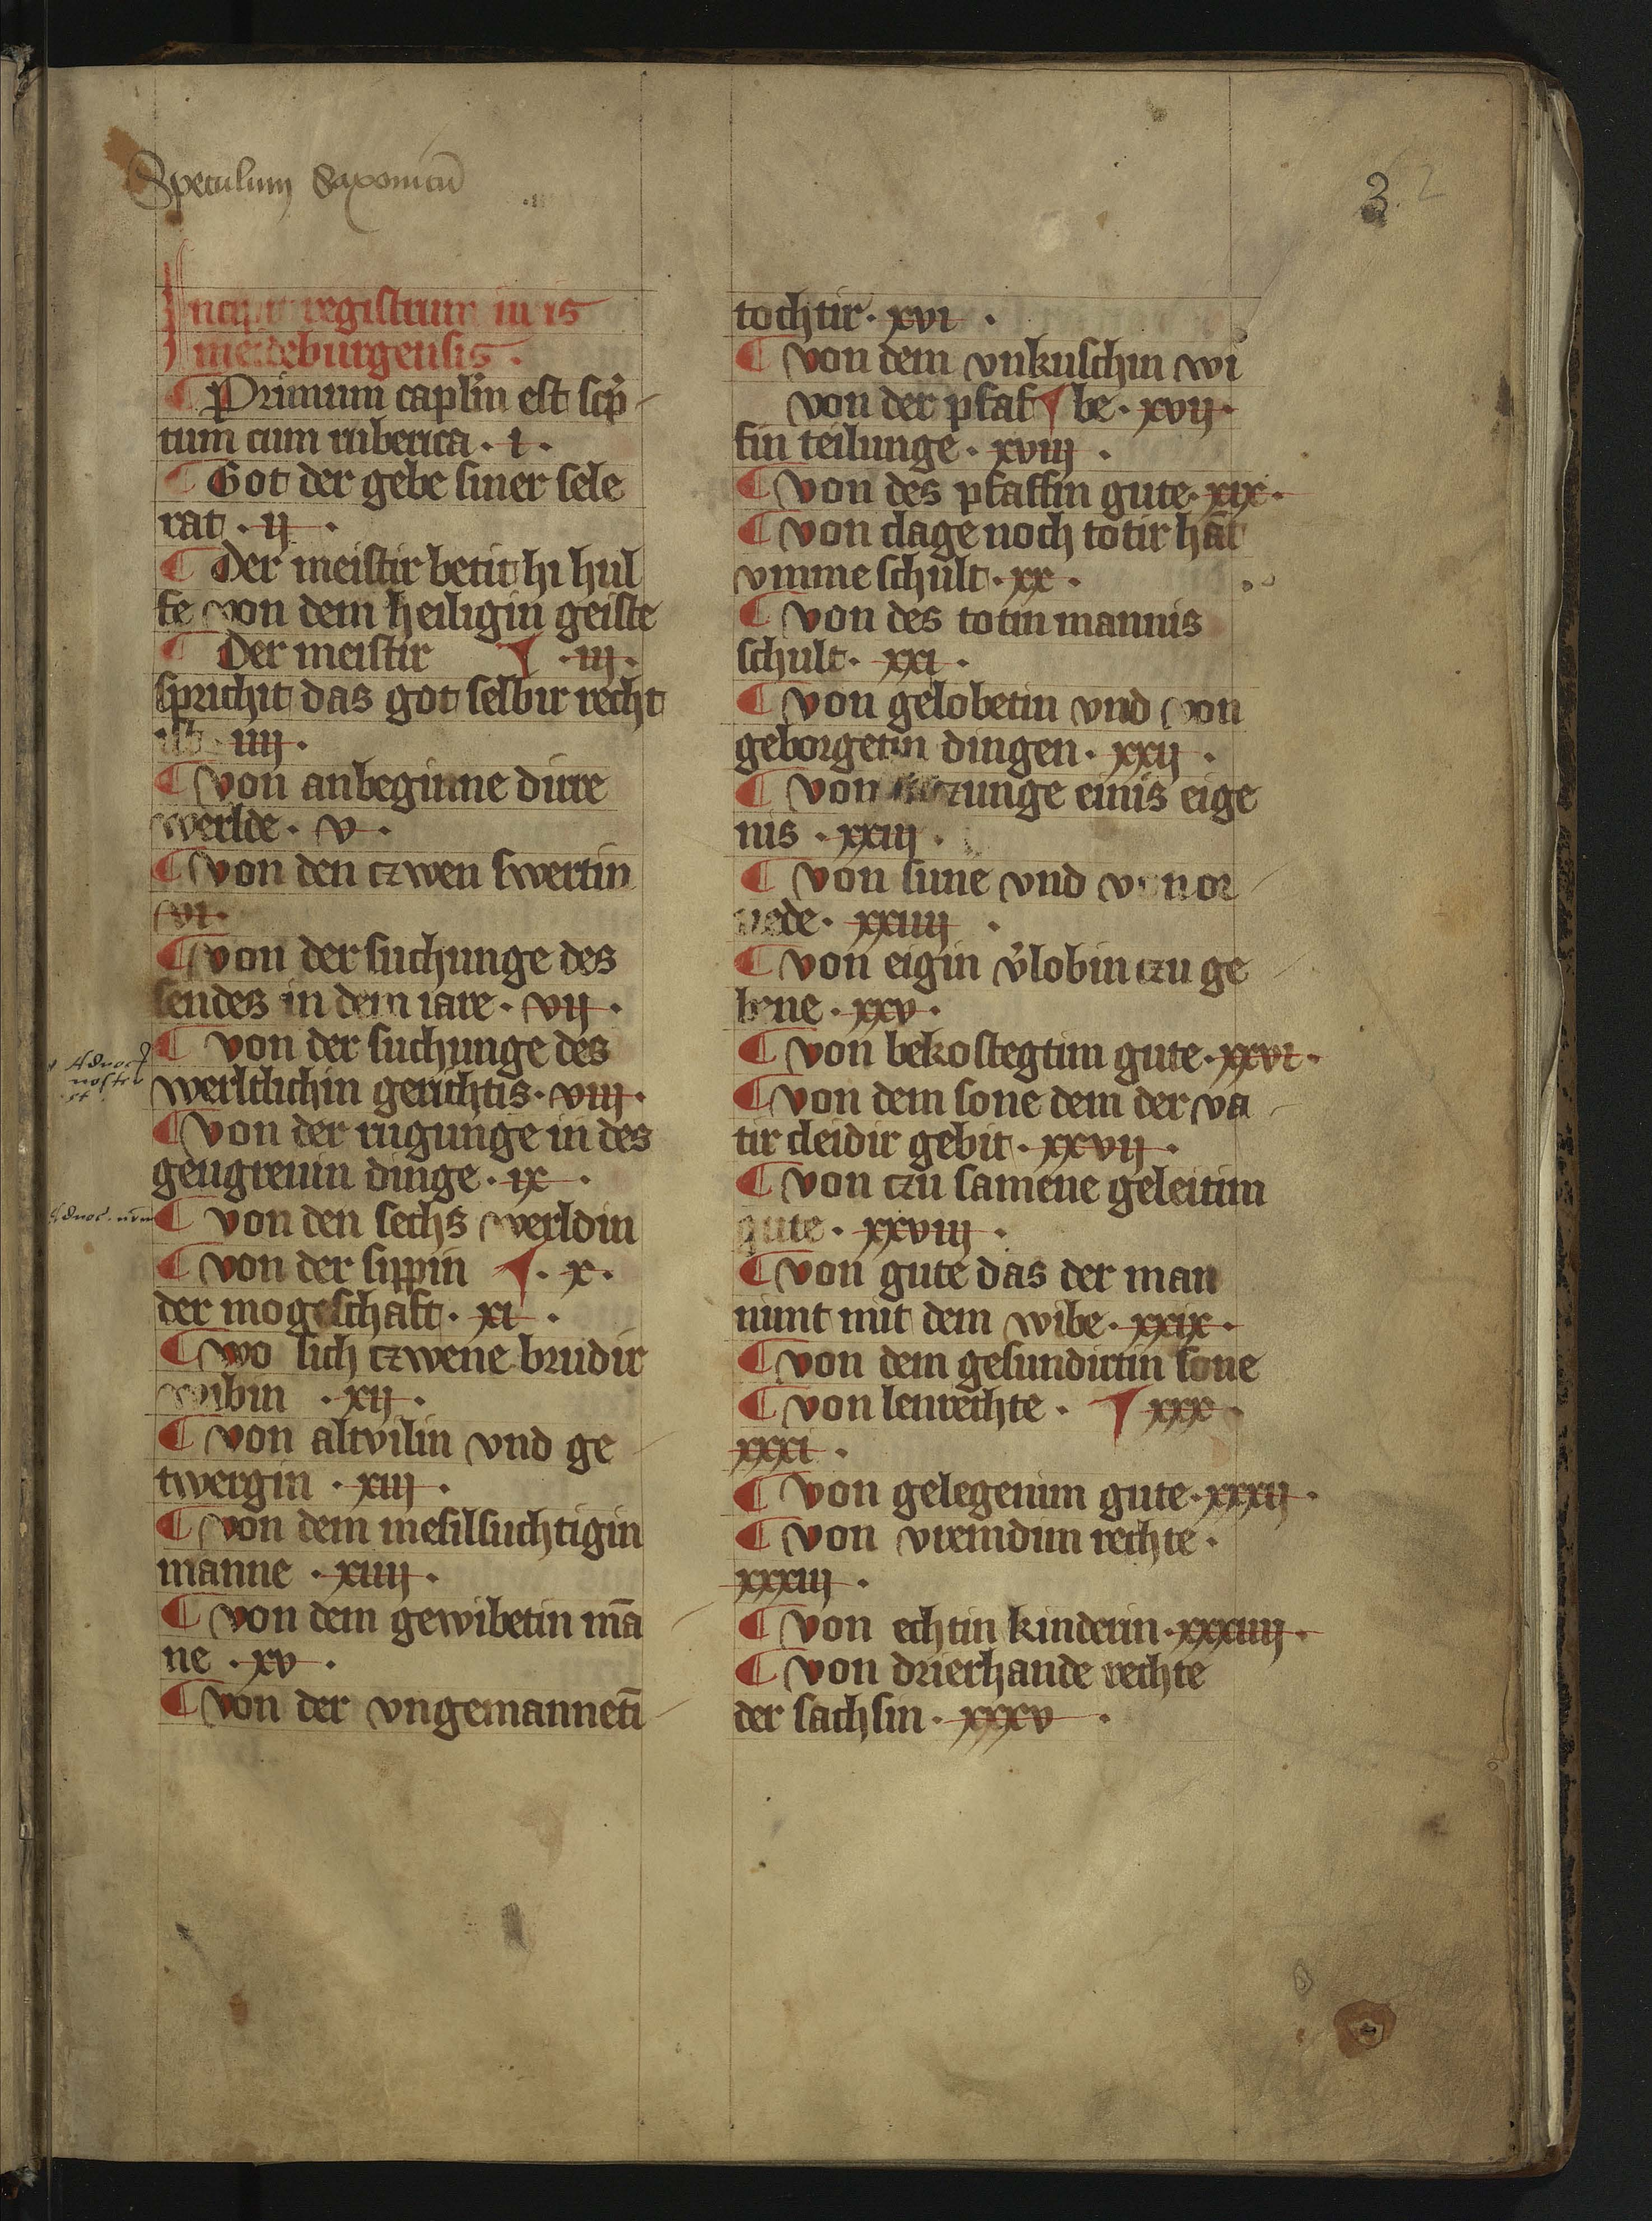 Speculum Saxonicū
3. 2
Incipit registrum iuris
meideburgensis.
¶ Primum capl'm est scp̄
tum cum ruberica. i.
¶ Got der gebe siner sele
rat. ij.
¶ Der meistir betit hi hul
fe von dem heiligin geiste
¶ Der meistir ¶ .iij.
sprichit das got selbir recht
ist. iiij.
¶ von anbeginne dirre
werlde. v.
¶ von den czwen swertin
vi.
¶ von der suchunge des
sendes in dem iare. vij.
¶ von der suchunge des
werltlichin gerichtis. viij.
¶ von der rugunge in des
gengreuin dinge. ix.
¶ von den sechs werldin
¶ von der sippin ¶. x.
der mogeschaft. xi.
¶ wo sich czwene brudir
wibin. xij.
¶ von altvilin vnd ge
twergin. xiij.
¶ von dem mesilsuchtigin
manne. xiiij.
¶ von dem gewibetin mā
ne. xv.
¶ von der vngemannetī
tochtir. xvi.
¶ von dem vnkuschin wi
von der pfaf ¶ be. xvij.
fin teilunge. xviij.
¶ von des pfaffin gute. xix.
¶ von clage noch totir hāt
vmme schult. xx.
¶ von des totin mannis
schult. xxi.
¶ von gelobetin vnd von
geborgetin dingen. xxij.
¶ von einis eige
nis. xxiij.
¶ von sune vnd von or
uede. xxiiij.
¶ von eigin v'lobin czu ge
bene. xxv.
¶ von bekostegtim gute. xxvi.
¶ von dem sone dem der va
tir cleidir gebit. xxvij.
¶ von czu samene geleitim
gute. xxviij.
¶ von gute das der man
nimt mit dem wibe. xxix.
¶ von dem gesundirtin sone
¶ von lenrechte. ¶ xxx.
xxxi.
¶ von gelegenim gute. xxxij.
¶ von vremdim rechte.
xxxiij.
¶ von echtin kinderin. xxxiiij.
¶ von drierhande rechte
der sachsin. xxxv.